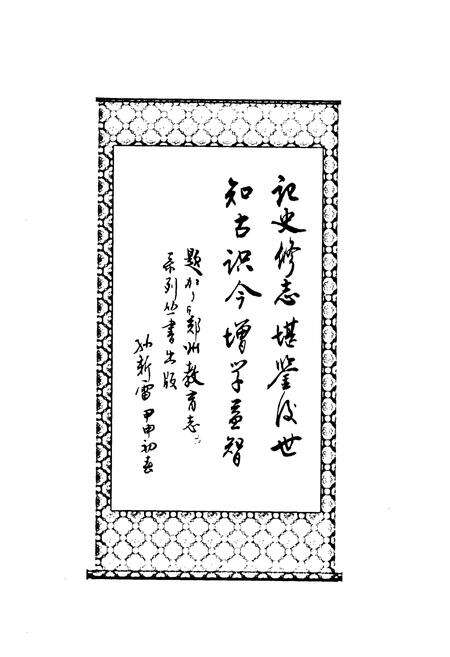 记史修志堪鉴后世
知古识今增学益智
题於《郑州教育志》
系列丛书出版
孙新雷 甲申初春